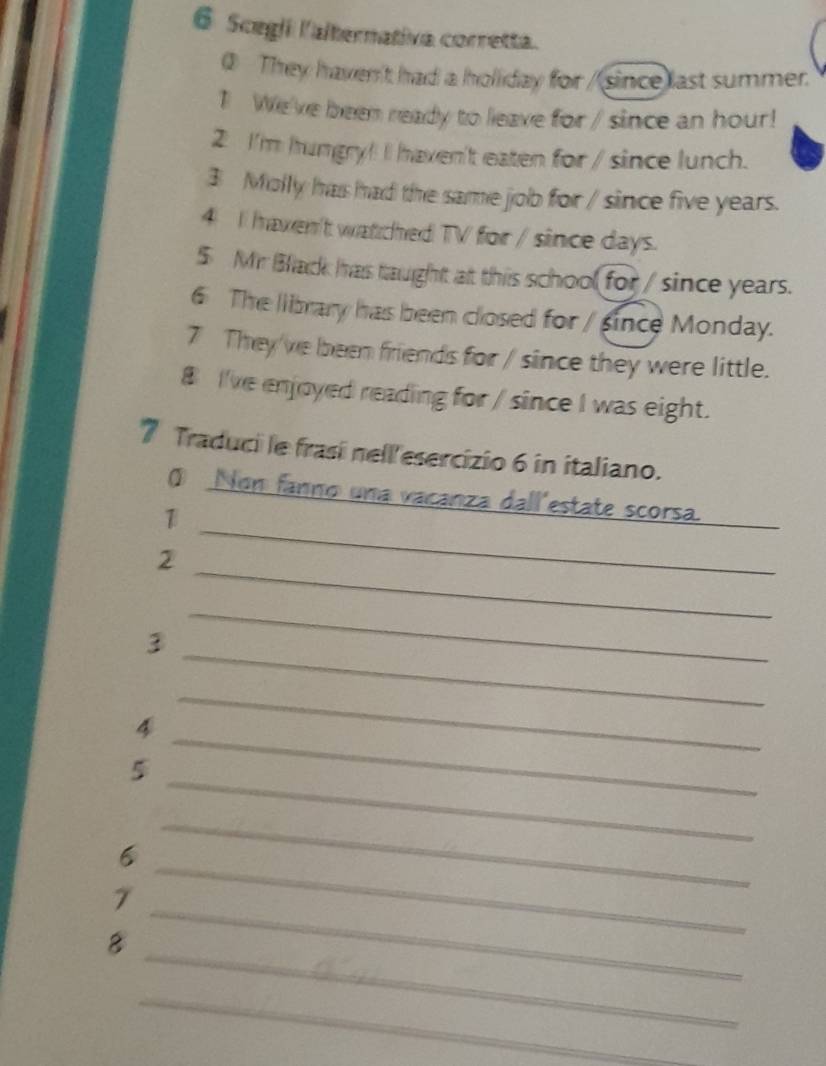 6 Scegli l'alternativa corretta.
0 They haven't had a holiday for / since last summer.
1 We've been ready to leave for / since an hour!
2 I'm hungry! I haven't eaten for / since lunch.
3 Molly has had the same job for / since five years.
4 I haven't watched TV for / since days.
5 Mr Black has taught at this school for / since years.
6 The library has been closed for / since Monday.
7 They've been friends for / since they were little.
8 I've enjoyed reading for / since I was eight.
7 Traduci le frasi nell'esercizio 6 in italiano.
0 Non fanno una vacanza dall'estate scorsa.
1
2
3
4
5
6
7
8